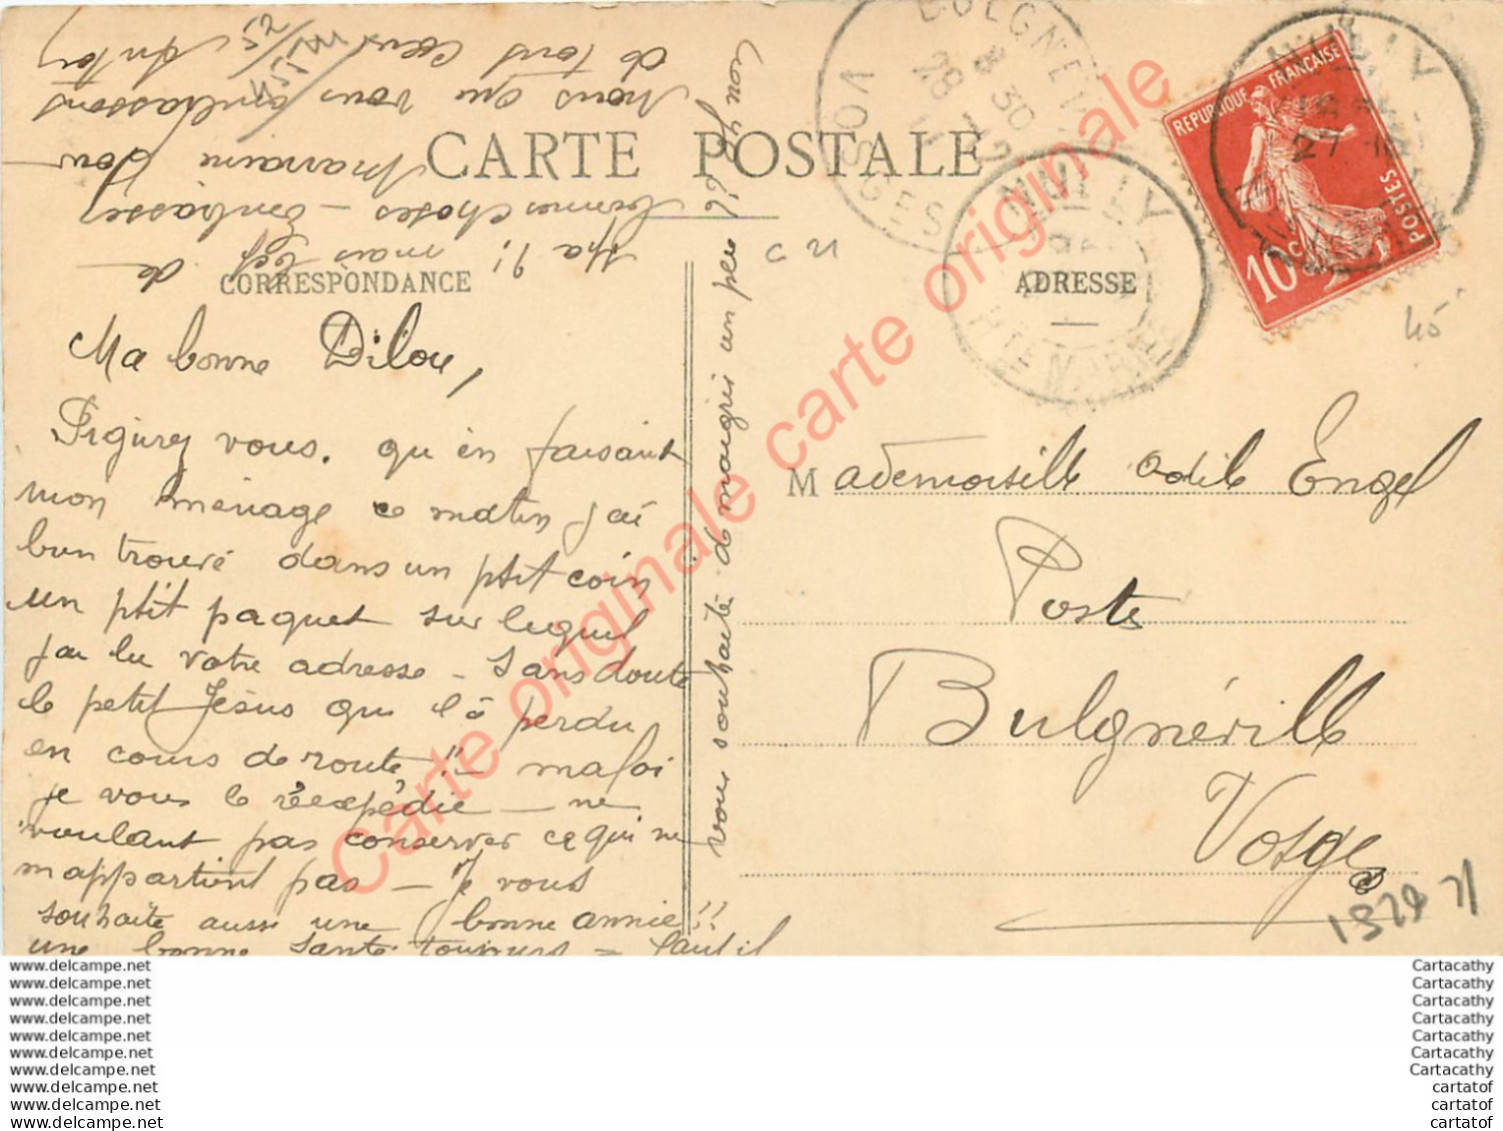 CARTE POSTALE
CORRESPONDANCE
ADRESSE
Ma bonne Dilou,
Figurez vous. qu'en faisant
mon ménage ce matin j'ai
bien trouvé dans un ptit coin
un ptit paquet sur lequel
j'ai lu votre adresse - Sans doute
le petit Jésus qui l'a perdu
en cours de route !! - ma foi
je vous le réexpédie - ne
voulant pas conserver ce qui ne
m'appartient pas - Je vous
souhaite aussi une bonne année !!
une bonne santé toujours = faut-il
vous souhaiter d maigrir un peu
Ma
mais de
bonnes choses - embrasser
Marraine pour
Nous qui vous embrassons
de tout cœur
Mademoiselle Odile Engel
Poste
Bulgnéville
Vosges
REPUBLIQUE FRANÇAISE
POSTES
10 c
NULLY
27
NULLY
HTE MARNE
BULGNEV
8 30
28
12
VOSGES
45
Carte originale carte originale carte originale
www.delcampe.net
www.delcampe.net
www.delcampe.net
www.delcampe.net
www.delcampe.net
www.delcampe.net
www.delcampe.net
www.delcampe.net
www.delcampe.net
www.delcampe.net
Cartacathy
Cartacathy
Cartacathy
Cartacathy
Cartacathy
Cartacathy
Cartacathy
cartatof
cartatof
cartatof